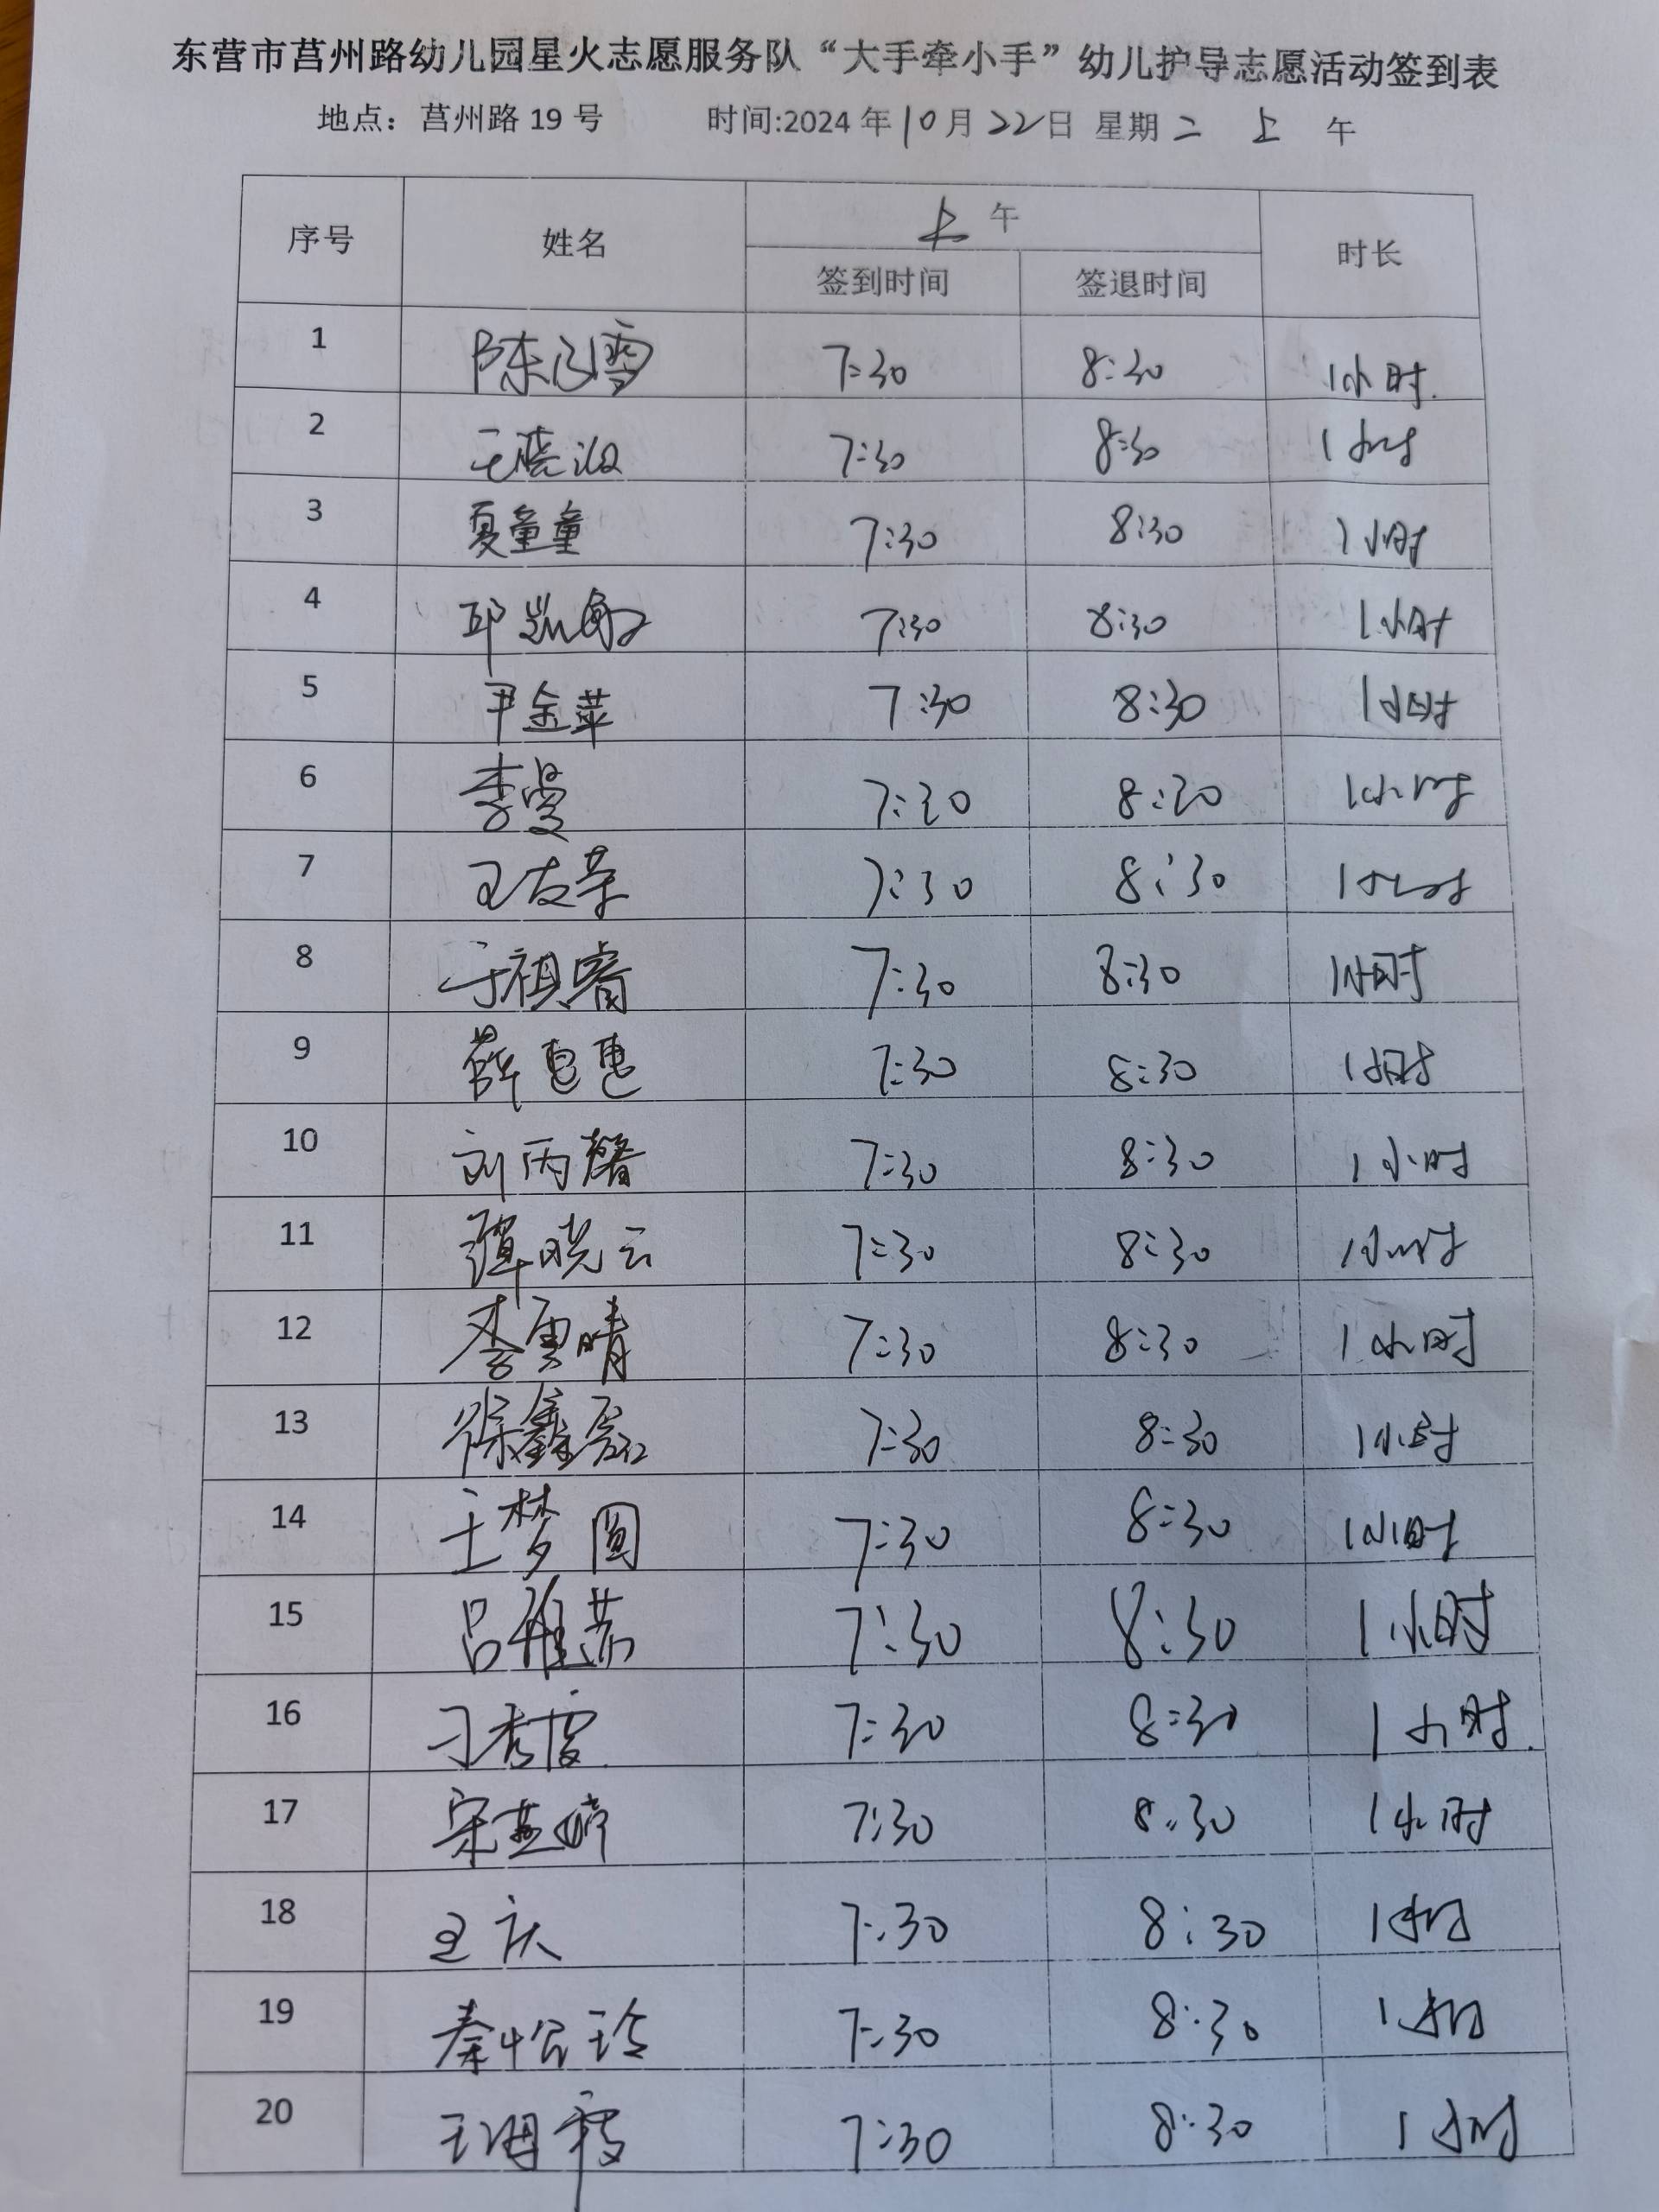 东营市莒州路幼儿园星火志愿服务队“大手牵小手”幼儿护导志愿活动签到表
地点：莒州路 19 号 时间:2024 年 10 月 22 日 星期 二 上 午
序号 姓名 上 午 时长
签到时间 签退时间
1 陈 雪 7:30 8:30 1小时.
2 王晓 7:30 8:30 1小时
3 夏童童 7:30 8:30 1小时
4 邱凯敏 7:30 8:30 1小时
5 尹金苹 7:30 8:30 1小时
6 李曼 7:30 8:30 1小时
7 王友荣 7:30 8:30 1小时
8 于祖睿 7:30 8:30 1小时
9 薛惠惠 7:30 8:30 1小时
10 刘丙馨 7:30 8:30 1小时
11 谭晓云 7:30 8:30 1小时
12 李雲晴 7:30 8:30 1小时
13 徐鑫磊 7:30 8:30 1小时
14 王梦圆 7:30 8:30 1小时
15 吕雅茹 7:30 8:30 1小时
16 刁秀霞 7:30 8:30 1小时.
17 宋燕婷 7:30 8:30 1小时
18 王庆 7:30 8:30 1小时
19 秦怡玲 7:30 8:30 1小时
20 王 7:30 8:30 1小时